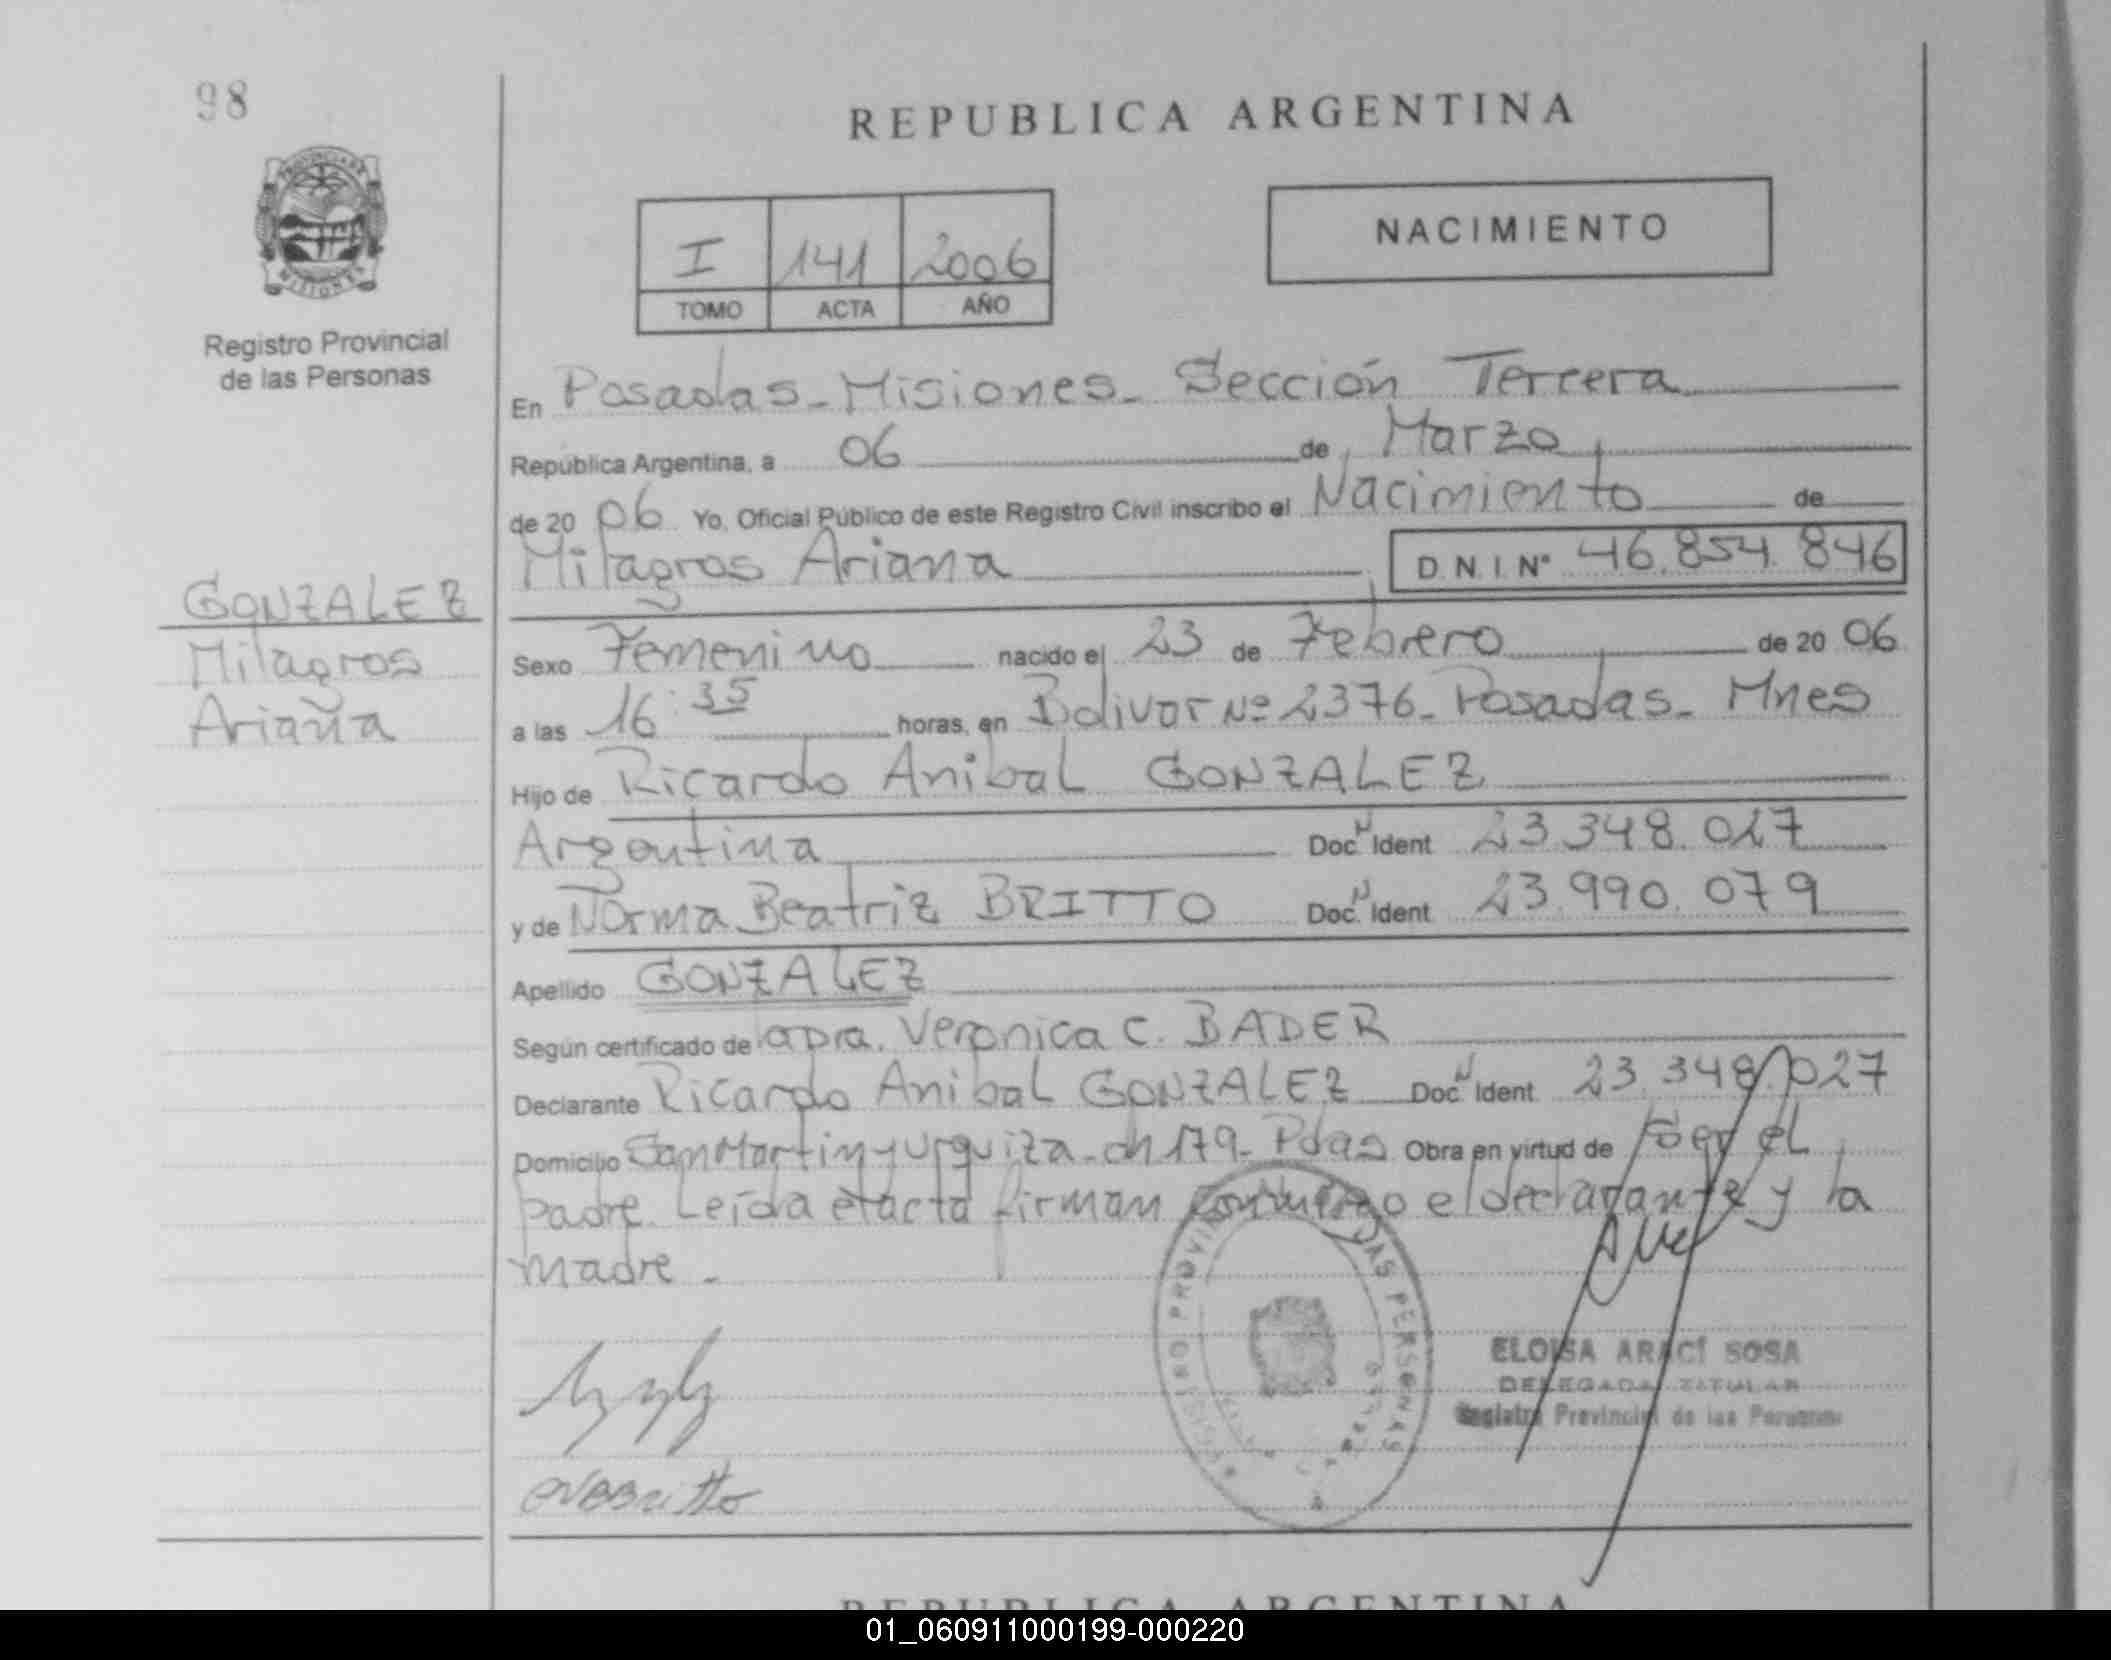 98
REPUBLICA ARGENTINA
PROVINCIA DE
MISIONES
Registro Provincial
de las Personas
I 141 2006
TOMO ACTA AÑO
NACIMIENTO
En Posadas - Misiones - Sección Tercera
República Argentina, a 06 de Marzo
de 20 06 Yo, Oficial Público de este Registro Civil inscribo el Nacimiento de
Milagros Ariana D.N.I. Nº 46.854.846
GONZALEZ
Milagros
Ariana
Sexo Femenino nacido el 23 de Febrero de 20 06
a las 16:35 horas, en Bolivar Nº 2376 - Posadas - Mnes
Hijo de Ricardo Anibal GONZALEZ
Argentina Doc. N Ident 23.348.027
y de Norma Beatriz BRITTO Doc. N Ident 23.990.079
Apellido GONZALEZ
Según certificado de Veronica C. BADER
Declarante Ricardo Anibal GONZALEZ Doc. N Ident 23.348.027
Domicilio San Martin y Urquiza - ch 179 - Pdas Obra en virtud de Ser el
padre. Leída el acta firman conmigo el declarante y la
madre -
REGISTRO PROVINCIAL DE LAS PERSONAS
ELOISA ARACÍ SOSA
DELEGADA TITULAR
Registro Provincial de las Personas
NBBritto
REPUBLICA ARGENTINA
01_060911000199-000220